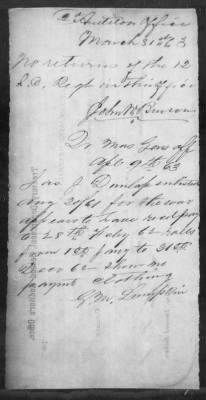 2d Auditors Office
March 31st 63
No returns of the 12
S.C. Regt in this office
John W
Qr Mas Genls off
Apl 9th 63
Jas. J Dunlap enlisted
Aug 20/61 for the war
appears to have recd pay
to 28th Feby 62 rolls
from 1st Jany to 31st
Decr 62 show no
paymt clothing
G. M. Lumpkin